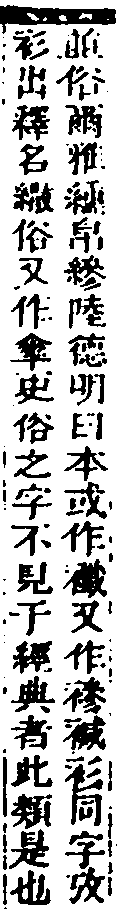 俗爾雅纁帛縿陸德明曰本或作襳又作襂襳衫同字攷
衫出釋名繖俗又作傘史俗之字不見于經典者此類是也